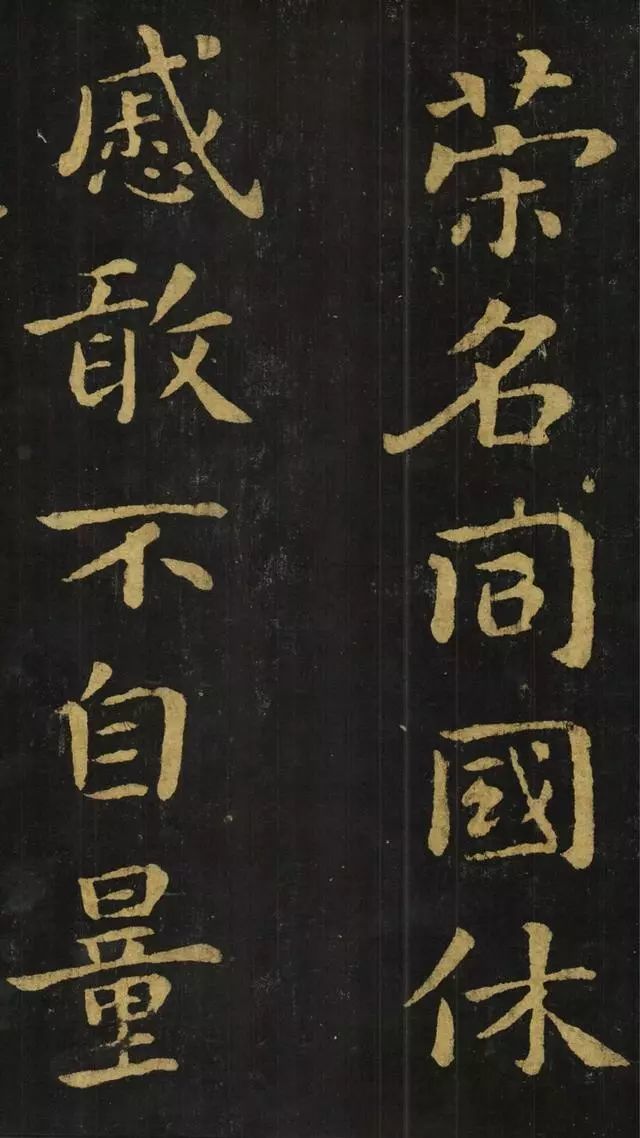 荣名同國休
慼敢不自量